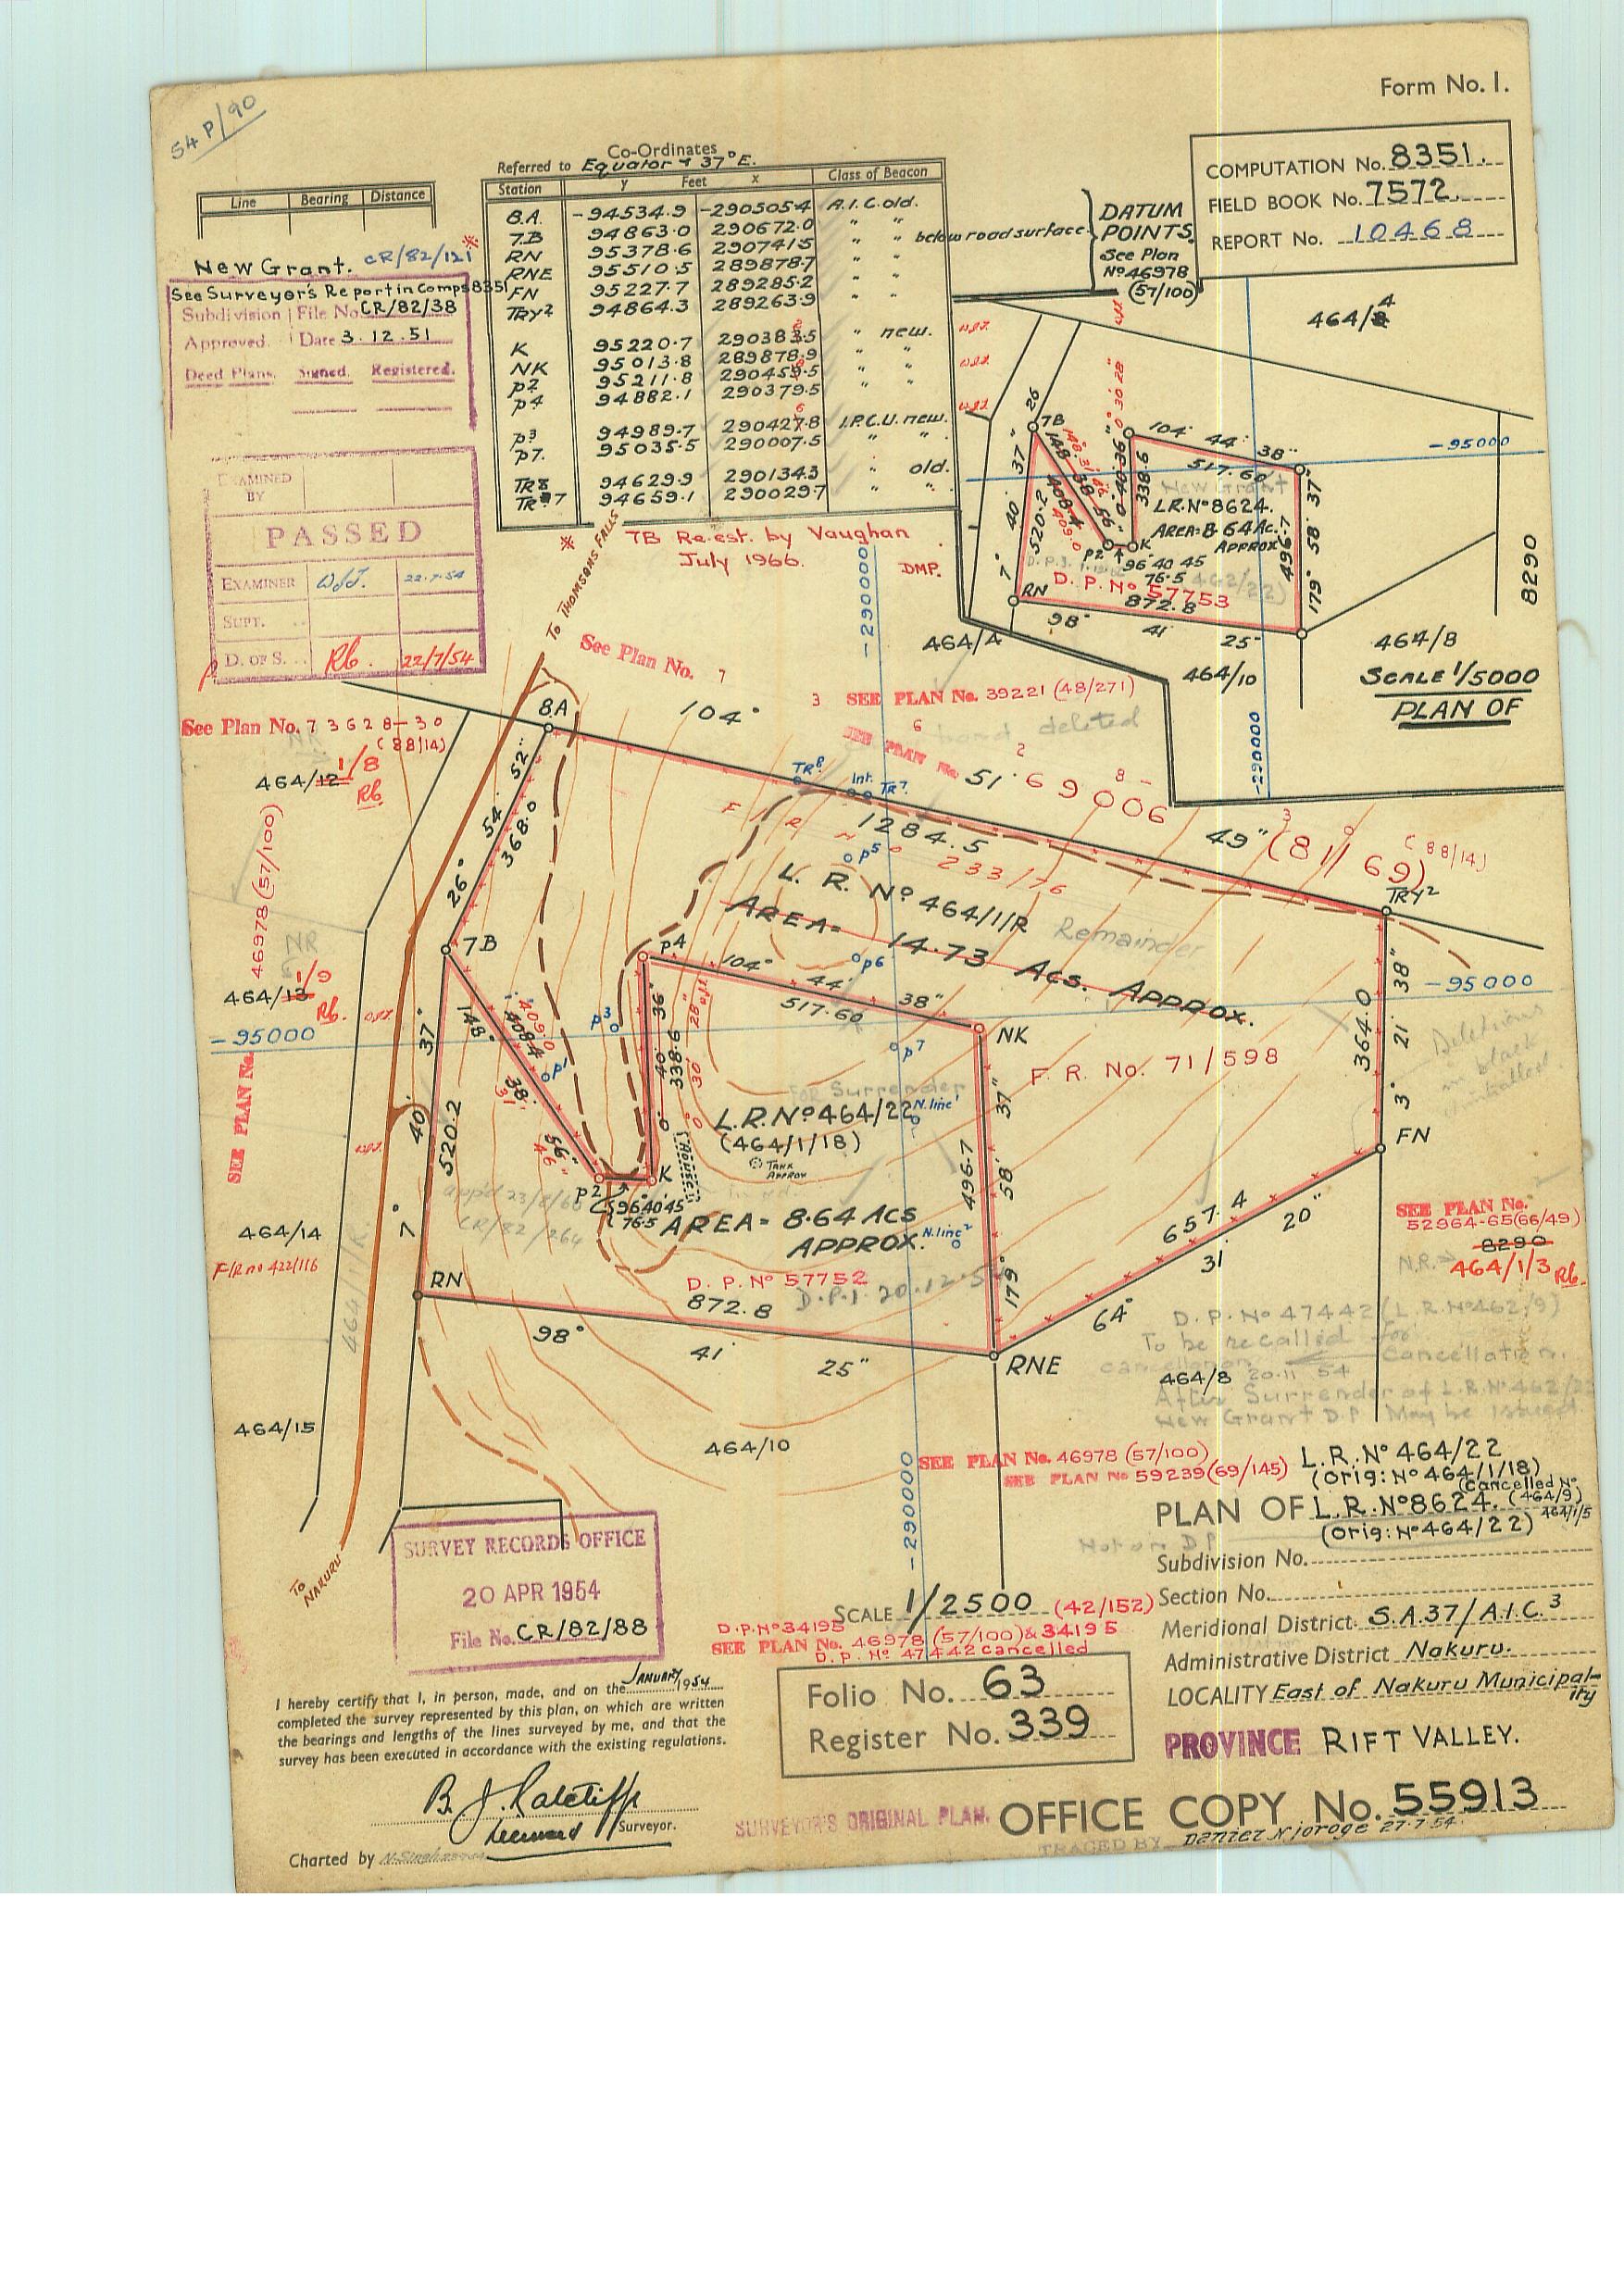 54 P/90
Form No. 1.
COMPUTATION No. 8351.
FIELD BOOK No. 7572.
REPORT No. 10468
Line Bearing Distance
New Grant. CR/82/121
See Surveyor's Report in Comps 8351
Subdivision File No. CR/82/38
Approved. Date 3.12.51
Deed Plans. Signed. Registered.
EXAMINED BY
PASSED
EXAMINER 22.7.54
SUPT.
D. OF S. Rb. 22/7/54
Co-Ordinates
Referred to Equator & 37° E.
Station y Feet x Class of Beacon
8.A. -94534.9 -290505.4 A.I.C. old.
7.B 94863.0 290672.0 " "
RN 95378.6 290741.5 " " below road surface
RNE 95510.5 289878.7 " "
FN 95227.7 289285.2 " "
TRY² 94864.3 289263.9 " "
K 95220.7 " new.
NK 95013.8 289878.9 " "
P2 95211.8 " "
P4 94882.1 290379.5 " "
P3 94989.7 I.P.C.U. new.
P7. 95035.5 290007.5 " "
TR8 94629.9 290134.3 " old.
TR7 94659.1 290029.7 " "
DATUM
POINTS
See Plan
No 46978
(57/100)
* 7B Re.est. by Vaughan
July 1966.
DMP.
464/4
26
7B
104° 44' 38"
517.60
-95000
37"
40'
7°
520.2
0° 30' 28"
338.6
New Grant
L.R. No 8624.
AREA=8.64 Ac.
APPROX
496.7
179° 58' 37"
P2
K
96 40 45
76.5
D.P. No 57753
RN
872.8
98° 41' 25"
464/4
464/10
464/8
8290
-290000
SCALE 1/5000
PLAN OF
TO THOMSONS FALLS
-290000
See Plan No. 7
SEE PLAN No. 39221 (48/271)
See Plan No. 73628-30
(88/14)
464/12
1/8
Rb
8A
104°
51'
49"
1284.5
TR8.
Int.
TR7.
69006
(81/69)
(88/14)
F R No 233/76
TRY²
26° 54' 52"
368.0
P5
L. R. No 464/1/R
Remainder
AREA= 14.73 Acs. APPROX.
P6
7B
P4
SEE PLAN No. 46978 (57/100)
NR
464/13
1/9
Rb.
-95000
37"
40'
7°
520.2
148° 38' 56"
408.4
409.0
P1
P3
0° 40' 36"
338.6
0° 30' 28"
104° 44' 38"
517.60
NK
P7
F. R. No. 71/598
364.0
3° 21' 38"
-95000
Deletions
in black
For Surrender
L.R. No 464/22
(464/1/18)
TANK
APPROX
HOUSE
N.linc¹
N.linc²
37"
496.7
58'
179°
FN
P2
K
96°40'45"
76.5
AREA= 8.64 Acs
APPROX.
app'd 23/8/66
CR/82/264
D.P. No 57752
D.P.1. 20.12.54
872.8
RN
98° 41' 25"
RNE
657.4
64° 31' 20"
464/14
F/R no 422/116
464/1/R
SEE PLAN No.
52964-65(66/49)
8290
N.R.
464/1/3 Rb.
D.P. No 47442 (L.R. No 462/9)
To be recalled for
cancellation.
20.11.54
464/8
After Surrender of L.R. No 462/22
New Grant D.P. May be issued.
464/15
464/10
TO NAKURU
-290000
SEE PLAN No. 46978 (57/100)
SEE PLAN No 59239 (69/145)
L.R. No 464/22
(Orig: No 464/1/18)
(Cancelled No.
PLAN OF L.R. No 8624. (464/9)
464/1/5
(Orig: No 464/22)
Not on DP
SURVEY RECORDS OFFICE
20 APR 1954
File No. CR/82/88
Subdivision No.
Section No.
Meridional District. S.A.37/A.I.C.³
Administrative District Nakuru.
LOCALITY East of Nakuru Municipal-
ity
PROVINCE RIFT VALLEY.
SCALE 1/2500 (42/152)
D.P. No 34195
SEE PLAN No. 46978 (57/100) & 34195
D.P. No 47442 cancelled
Folio No. 63
Register No. 339
I hereby certify that I, in person, made, and on the January 1954
completed the survey represented by this plan, on which are written
the bearings and lengths of the lines surveyed by me, and that the
survey has been executed in accordance with the existing regulations.
B. J. Ratcliffe
Licensed Surveyor.
Charted by N. Singh
SURVEYOR'S ORIGINAL PLAN.
OFFICE COPY No. 55913
TRACED BY Daniel Njoroge 27.7.54.